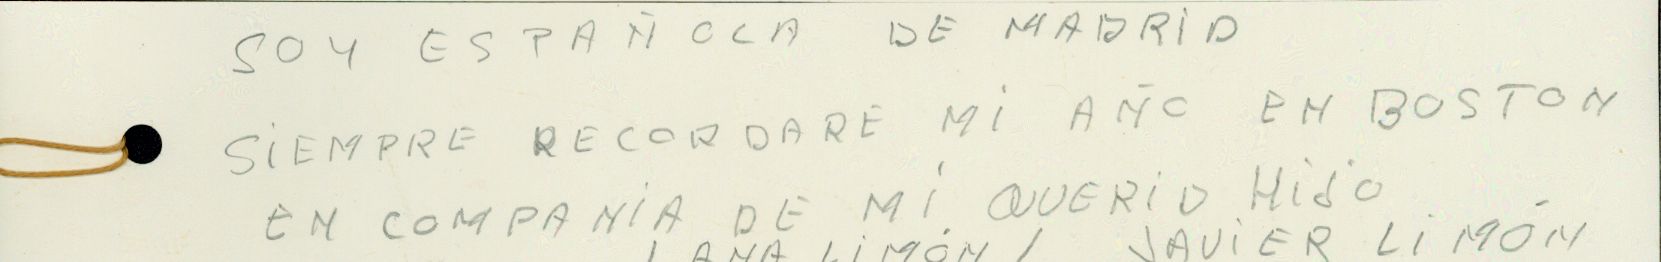 SOY ESPAÑOLA DE MADRID
SiEMPRE RECORDARE Mi AÑO EN BOSTON
EN COMPANíA DE Mi QUERiD HiJO
/ ANA LiMÓN / JAViER LiMÓN